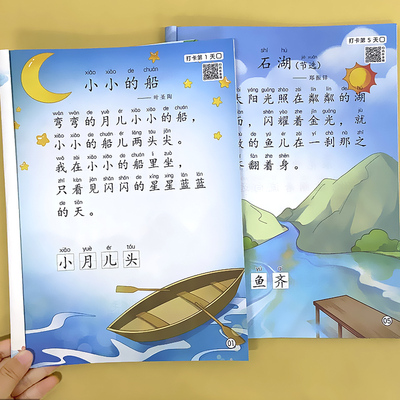 打卡第 1 天
xiǎo xiǎo de chuán
小小的船
——叶圣陶
wān wān de yuè ér xiǎo xiǎo de chuán
弯弯的月儿小小的船，
xiǎo xiǎo de chuán ér liǎng tóu jiān
小小的船儿两头尖。
wǒ zài xiǎo xiǎo de chuán lǐ zuò
我在小小的船里坐，
zhǐ kàn jiàn shǎn shǎn de xīng xing lán lán
只看见闪闪的星星蓝蓝
de tiān
的天。
xiǎo yuè ér tóu
小月儿头
01
打卡第 5 天
shí hú
石湖（节选）
——郑振铎
阳光照在粼粼的湖
，闪耀着金光，就
的鱼儿在一刹那之
翻着身。
yú qí
鱼齐
05